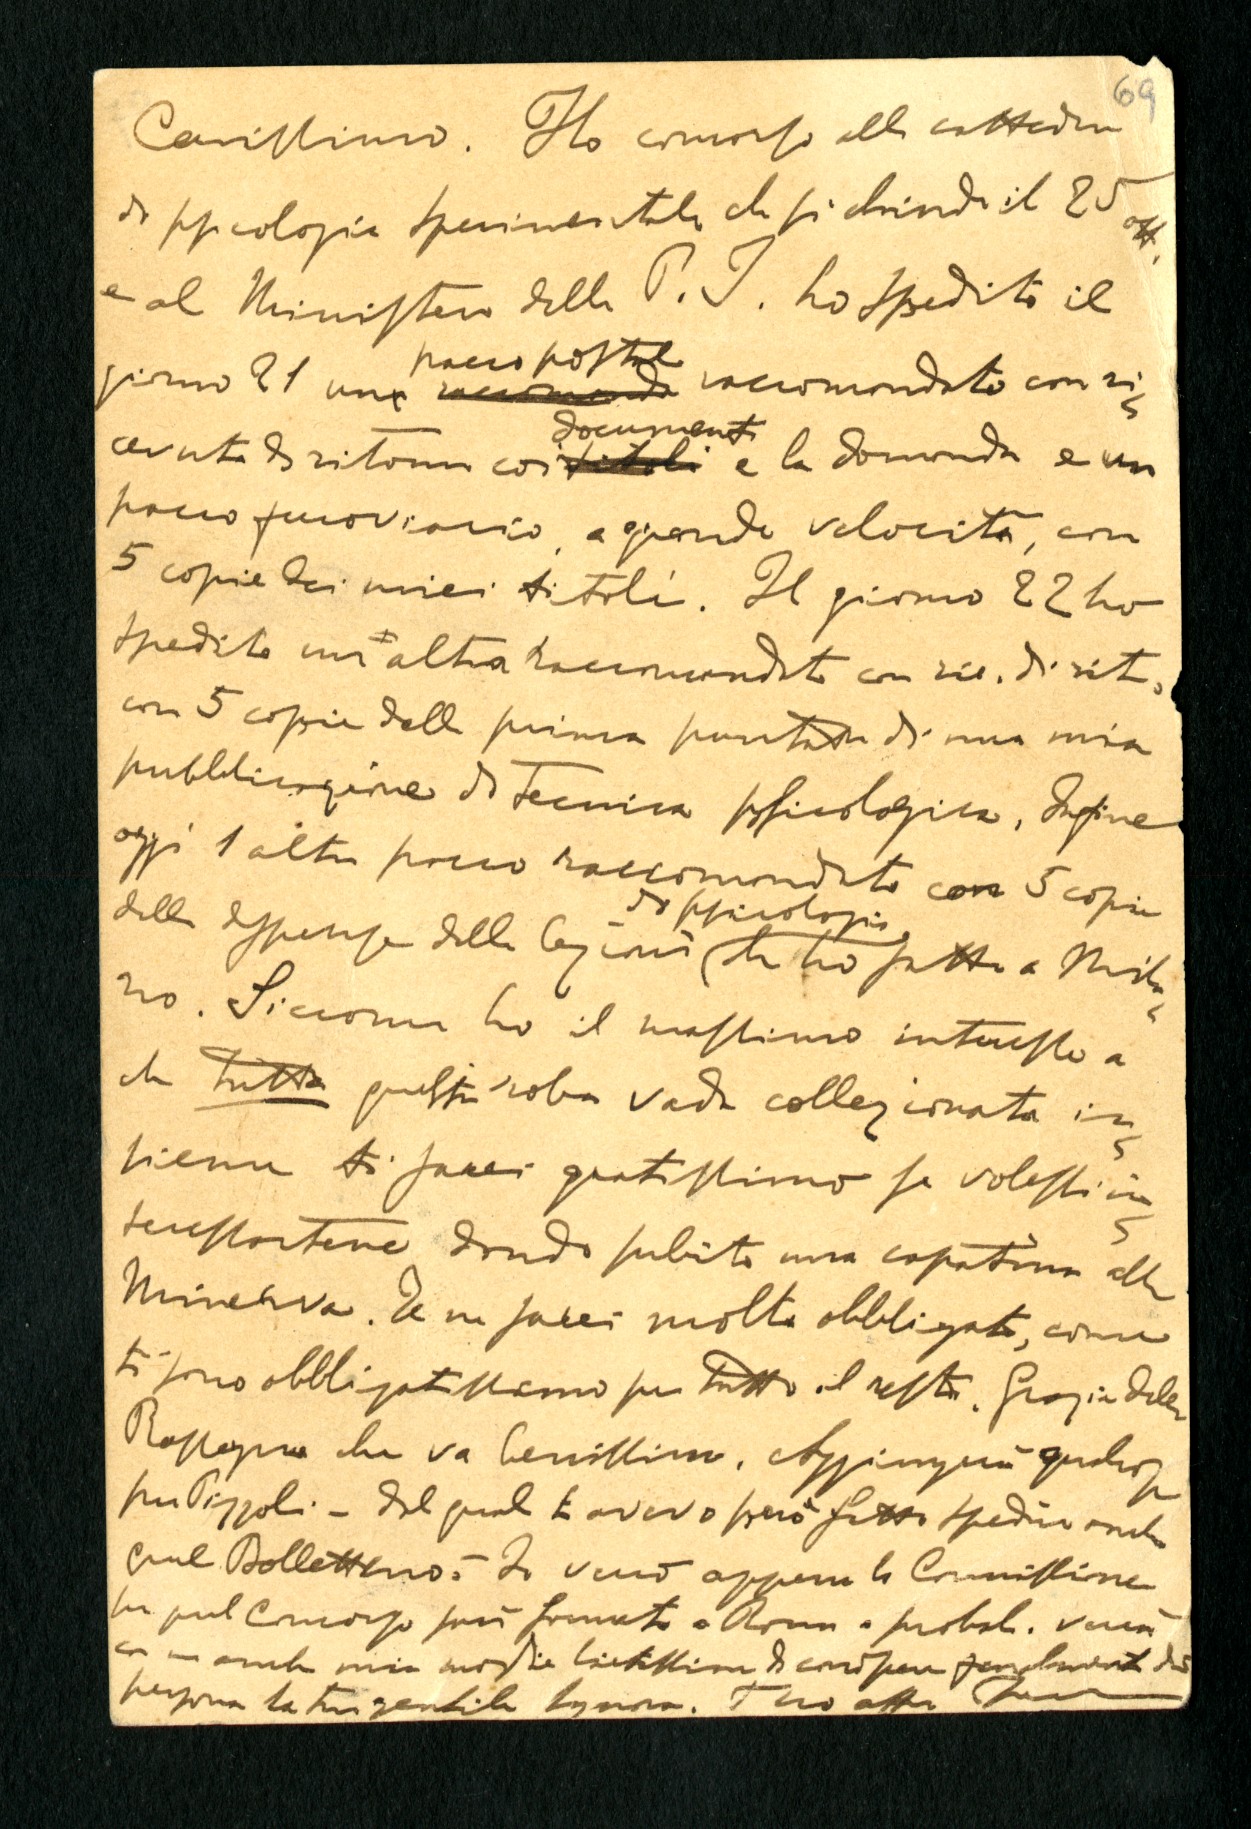 69
Carissimo. Ho concorso alla cattedra
di psicologia sperimentale che si chiude il 25 ott.
e al Ministero della P. I. ho spedito il
giorno 21 un pacco postale raccomandato con ri-
cevuta di ritorno coi documenti e la domanda e un
pacco ferroviario, a grande velocità, con
5 copie dei miei titoli. Il giorno 22 ho
spedito un altra raccomandata con ric. di rit.
con 5 copie della prima puntata di una mia
pubblicazione di Tecnica psicologica. Infine
oggi 1 altro pacco raccomandato con 5 copie
delle dispense delle lezioni di psicologia che ho fatte a Mila-
no. Siccome ho il massimo interesse a
che tutta questa roba vada collezionata in-
sieme ti sarei gratissimo se volessi in-
teressartene dando subito una capatina alla
Minerva. Te ne sarei molto obbligato, come
ti sono obbligatissimo per tutto il resto. Grazie della
Rassegna che va benissimo. Aggiungerai qualcosa
su Pizzoli - del quale ti avevo però fatto spedire anche
quel Bollettino - Io verrò appena la Commissione
per quel Concorso sarà formata a Roma e probab. verrà
con me anche mia moglie lietissima di conoscere finalmente di
persona la tua gentile Signora. Tuo aff.